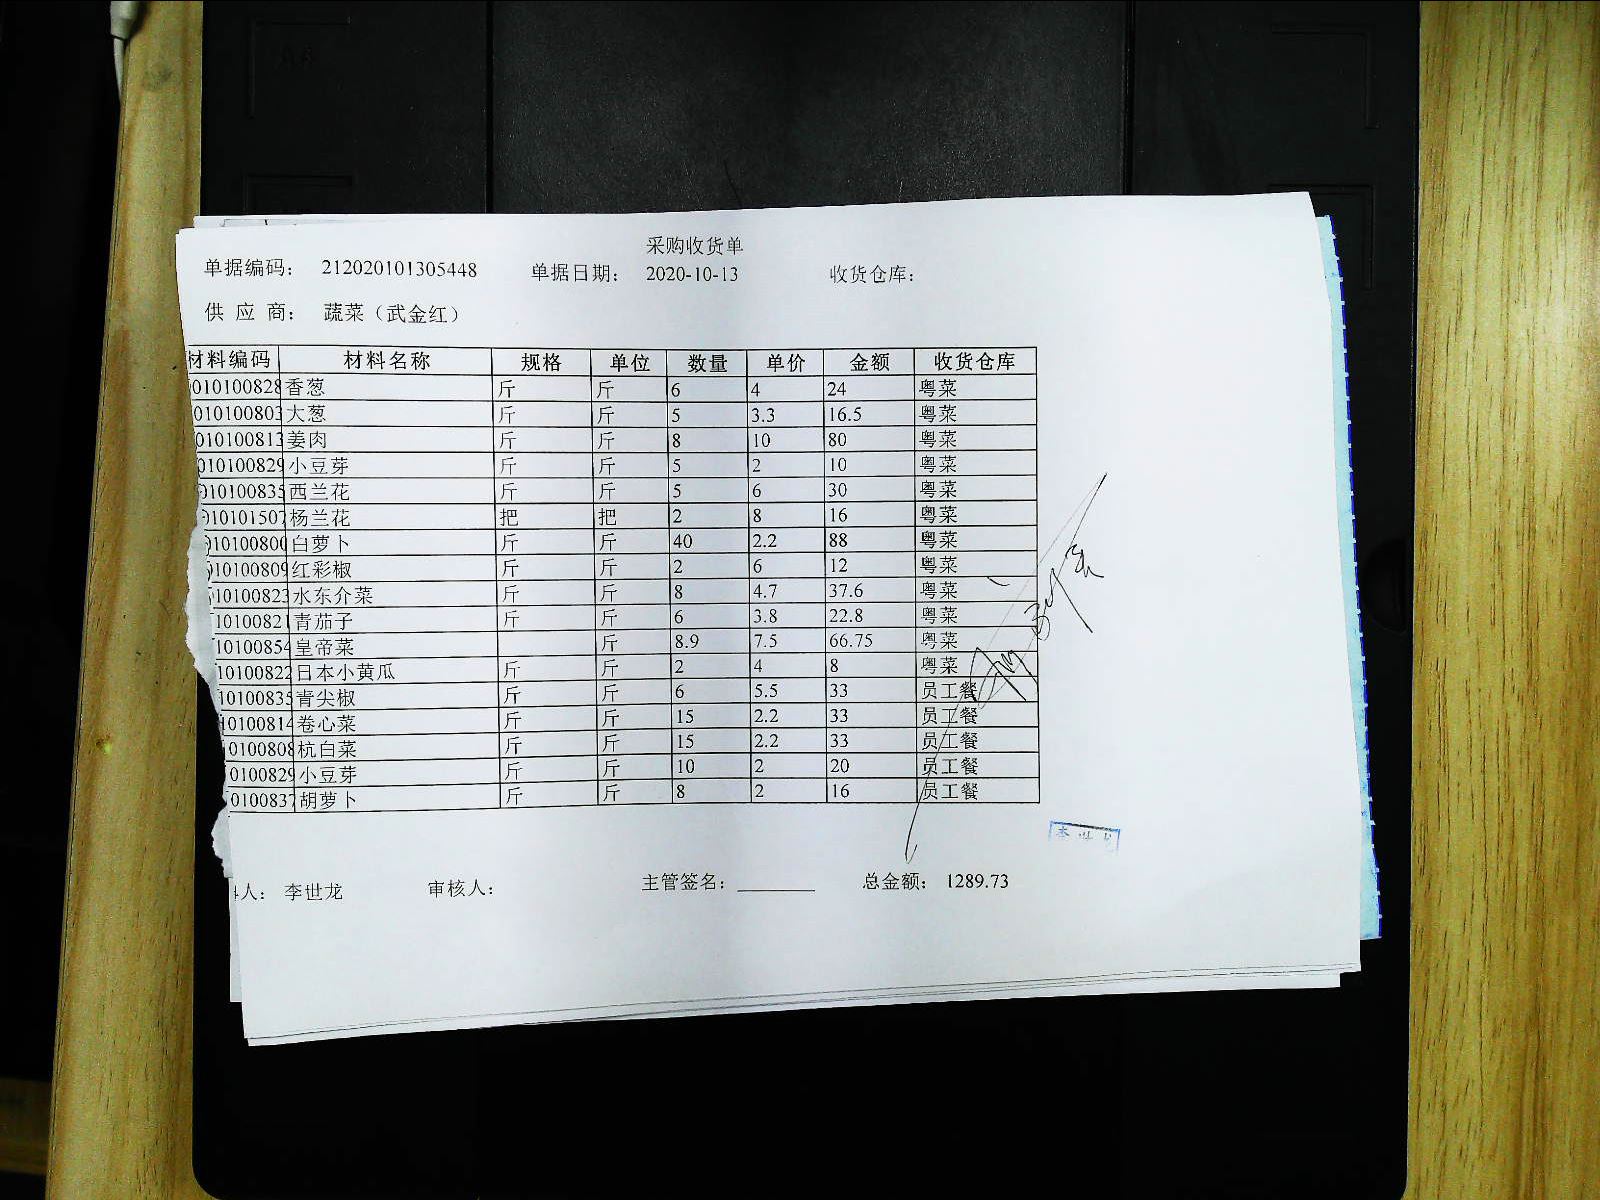 采购收货单
单据编码： 212020101305448 单据日期： 2020-10-13 收货仓库：
供 应 商： 蔬菜（武金红）
材料编码 材料名称 规格 单位 数量 单价 金额 收货仓库
010100828 香葱 斤 斤 6 4 24 粤菜
010100803 大葱 斤 斤 5 3.3 16.5 粤菜
010100813 姜肉 斤 斤 8 10 80 粤菜
010100829 小豆芽 斤 斤 5 2 10 粤菜
010100835 西兰花 斤 斤 5 6 30 粤菜
010101507 杨兰花 把 把 2 8 16 粤菜
010100800 白萝卜 斤 斤 40 2.2 88 粤菜
10100809 红彩椒 斤 斤 2 6 12 粤菜
10100823 水东介菜 斤 斤 8 4.7 37.6 粤菜
10100821 青茄子 斤 斤 6 3.8 22.8 粤菜
10100854 皇帝菜 斤 8.9 7.5 66.75 粤菜
10100822 日本小黄瓜 斤 斤 2 4 8 粤菜
10100835 青尖椒 斤 斤 6 5.5 33 员工餐
10100814 卷心菜 斤 斤 15 2.2 33 员工餐
0100808 杭白菜 斤 斤 15 2.2 33 员工餐
0100829 小豆芽 斤 斤 10 2 20 员工餐
0100837 胡萝卜 斤 斤 8 2 16 员工餐
人： 李世龙 审核人： 主管签名： 总金额： 1289.73